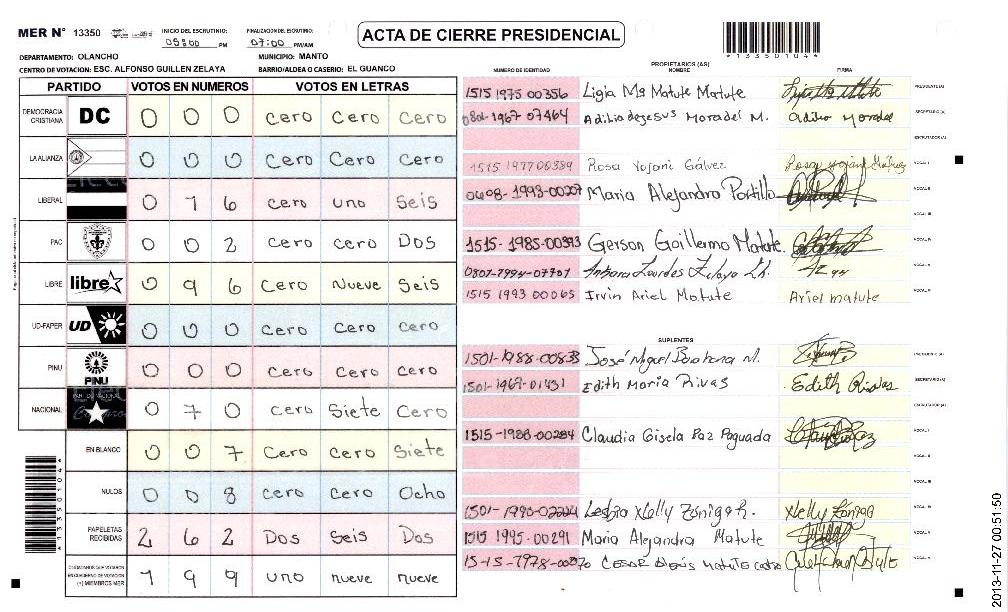 MER N° 13350
INICIO DEL ESCRUTINIO: 05:00 PM
FINALIZACION DEL ESCRUTINIO: 07:00 PM/AM
ACTA DE CIERRE PRESIDENCIAL
*133501041*
DEPARTAMENTO: OLANCHO
MUNICIPIO: MANTO
CENTRO DE VOTACION: ESC. ALFONSO GUILLEN ZELAYA
BARRIO/ALDEA O CASERIO: EL GUANCO
PARTIDO VOTOS EN NUMEROS VOTOS EN LETRAS
DEMOCRACIA CRISTIANA DC 0 0 0 cero cero cero
LA ALIANZA 0 0 0 Cero Cero Cero
LIBERAL 0 1 6 cero uno Seis
PAC 0 0 2 cero cero Dos
LIBRE libre 0 9 6 Cero Nueve Seis
UD-FAPER UD 0 0 0 Cero Cero cero
PINU PINU 0 0 0 cero cero cero
NACIONAL 0 7 0 cero Siete Cero
EN BLANCO 0 0 7 Cero Cero Siete
NULOS 0 0 8 cero Cero Ocho
PAPELETAS RECIBIDAS 2 6 2 Dos Seis Dos
CIUDADANOS QUE VOTARON EN CUADERNO DE VOTACION (+) MIEMBROS MER 1 9 9 uno nueve nueve
PROPIETARIOS (AS)
NUMERO DE IDENTIDAD NOMBRE FIRMA
1515 1975 00356 Ligia Mª Matute Matute PRESIDENTE (A)
0801-1967 07464 Adilia de jesus Moradel M. SECRETARIO (A)
ESCRUTADOR (A)
1515 1977 00389 Rosa Yojani Gálvez VOCAL I
Maria Alejandra Portillo VOCAL II
VOCAL III
1515-1985-00393 Gerson Guillermo Matute VOCAL IV
Lourdes Zelaya VOCAL V
1515 1993 00065 Irvin Ariel Matute Ariel matute
SUPLENTES
1501-1988-00833 José Miguel Barahona M. PRESIDENTE (A)
1501-1967-01431 Edith Maria Rivas Edith Rivas SECRETARIO (A)
ESCRUTADOR (A)
1515-1988-00284 Claudia Gisela Paz Paguada VOCAL I
VOCAL II
VOCAL III
Lesbia Nelly Zúniga R. Nelly Zúniga
1515 1995-00291 Maria Alejandra Matute
2013-11-27 00:51:50